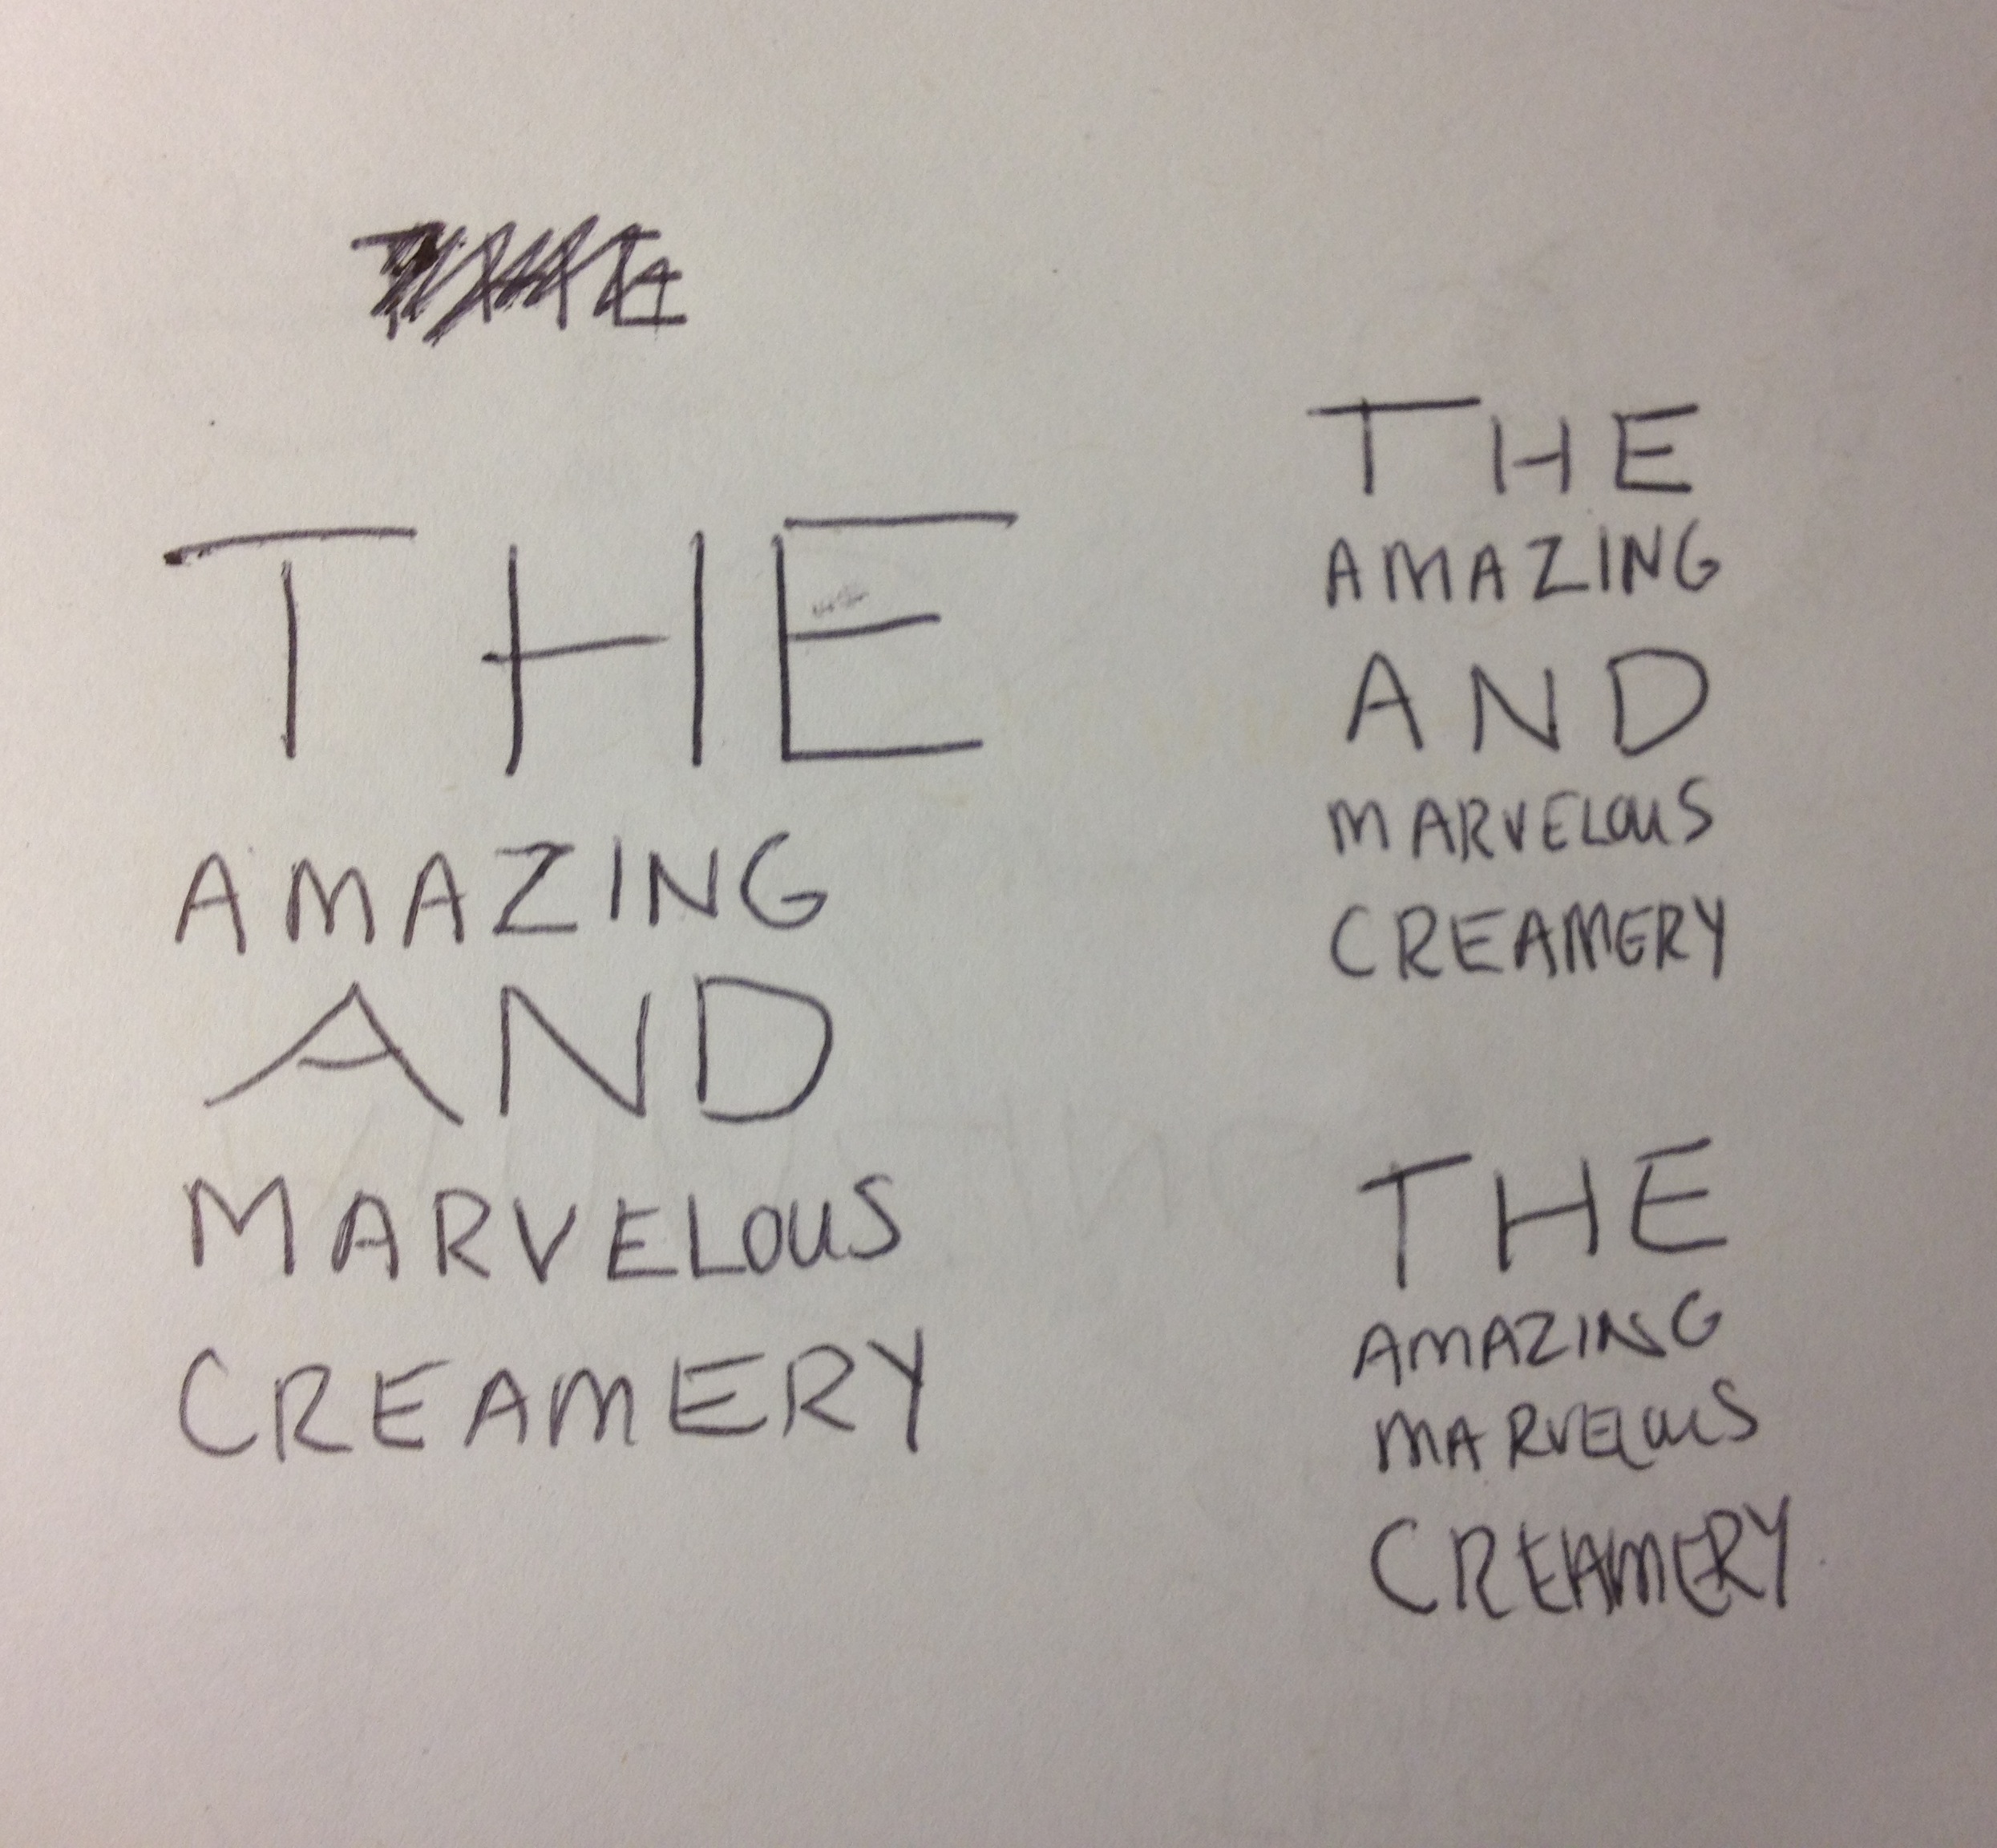 THE
AMAZING
AND
MARVELOUS
CREAMERY
THE
AMAZING
AND
MARVELOUS
CREAMERY
THE
AMAZING
MARVELOUS
CREAMERY